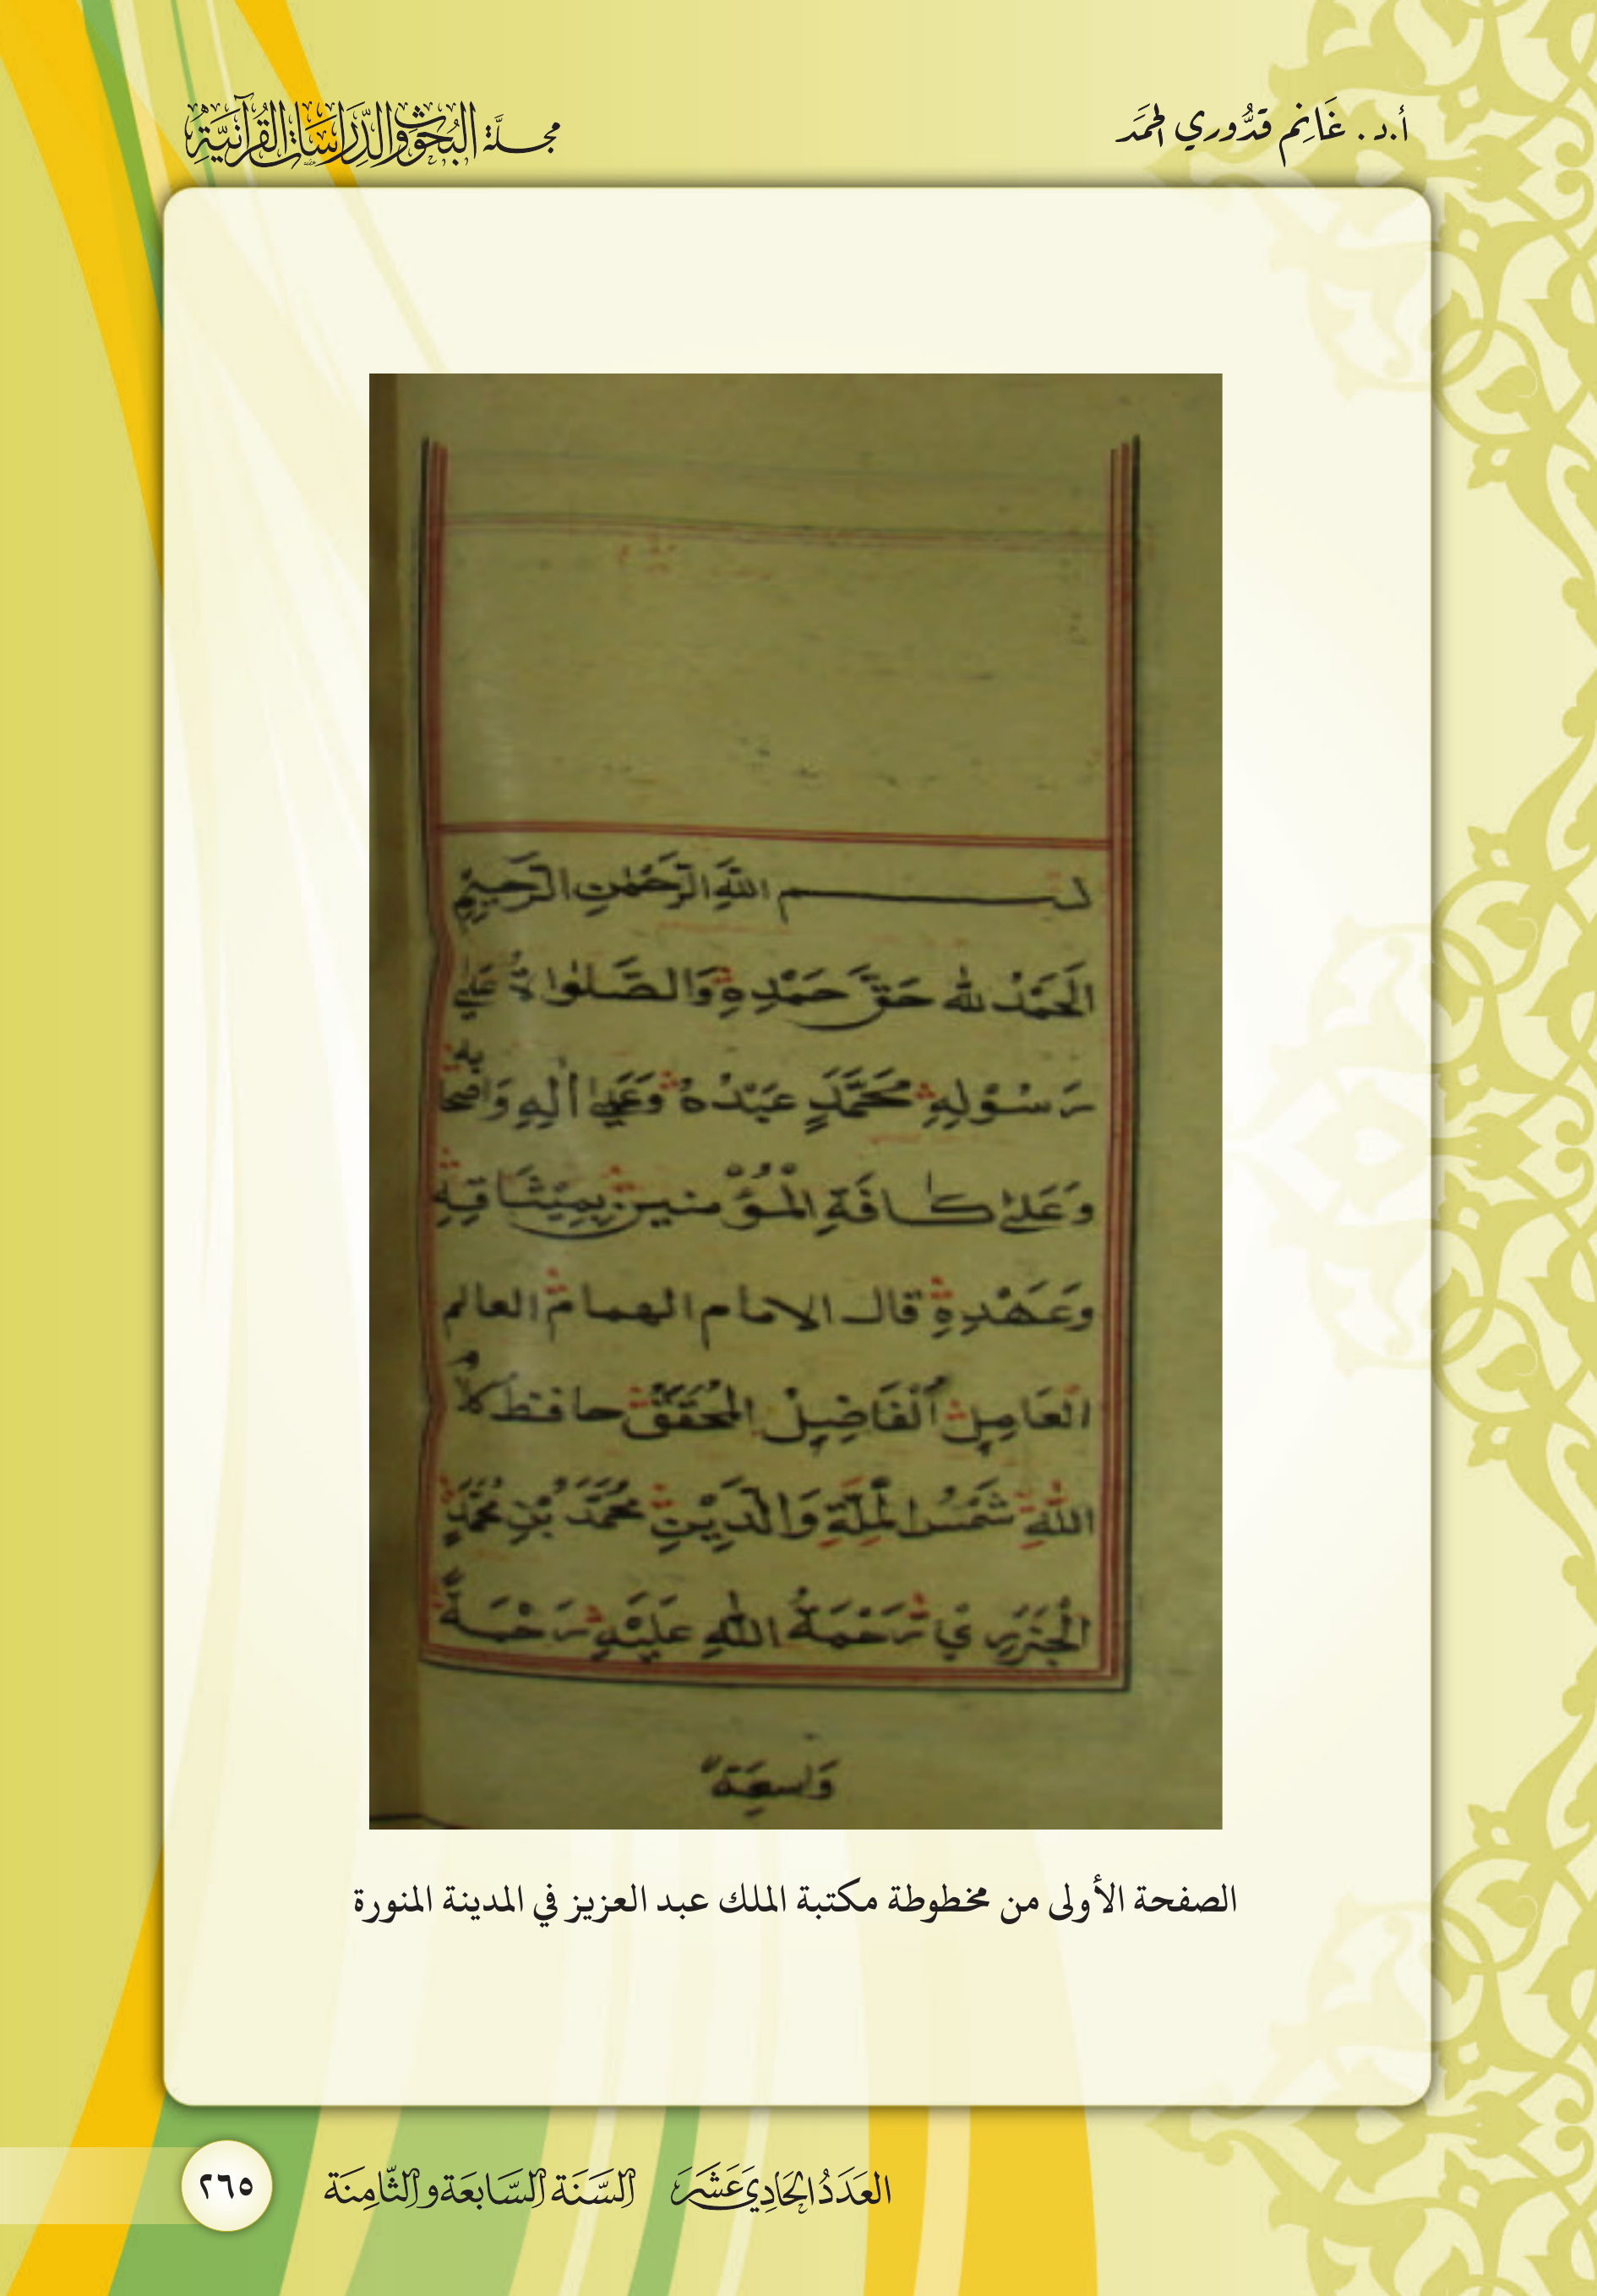 أ.د. غَانِم قدُّوري الحَمَد
مجلَّة البُحُوثِ والدِّرَاسَاتِ القُرآنيَّةِ
بســـــم اللَّهِ الرَّحْمٰنِ الرَّحِيمِ
اَلْحَمْدُ لله حَقَّ حَمْدِهِ وَالصَّلٰواةُ عَلٰى
رَسُوْلِهِ مُحَمَّدٍ عَبْدُهُ وَعَلٰى اٰلِهِ وَاصحابه
وَعَلٰى كافَةِ الْمُؤْمنين بِمِيْثَاقِهِ
وَعَهْدِهِ قال الامام الهمام العالم
العَامِلِ اَلْفَاضِلْ المُحَقِّقْ حافظ كلام
اللّٰهِ شَمْسُ الْمِلَّةِ وَالدِّيْنِ مُحَمَّدُ بْنِ مُحَمَّدٍ
الْجَزَرِي رَحْمَةُ اللّٰهِ عَلَيْهِ رَحْمَةً
وَاسعَةً
الصفحة الأولى من مخطوطة مكتبة الملك عبد العزيز في المدينة المنورة
العَدَدُ الحَادِي عَشَرَ السَّنَة السَّابعَة والثَّامِنَة
٢٦٥